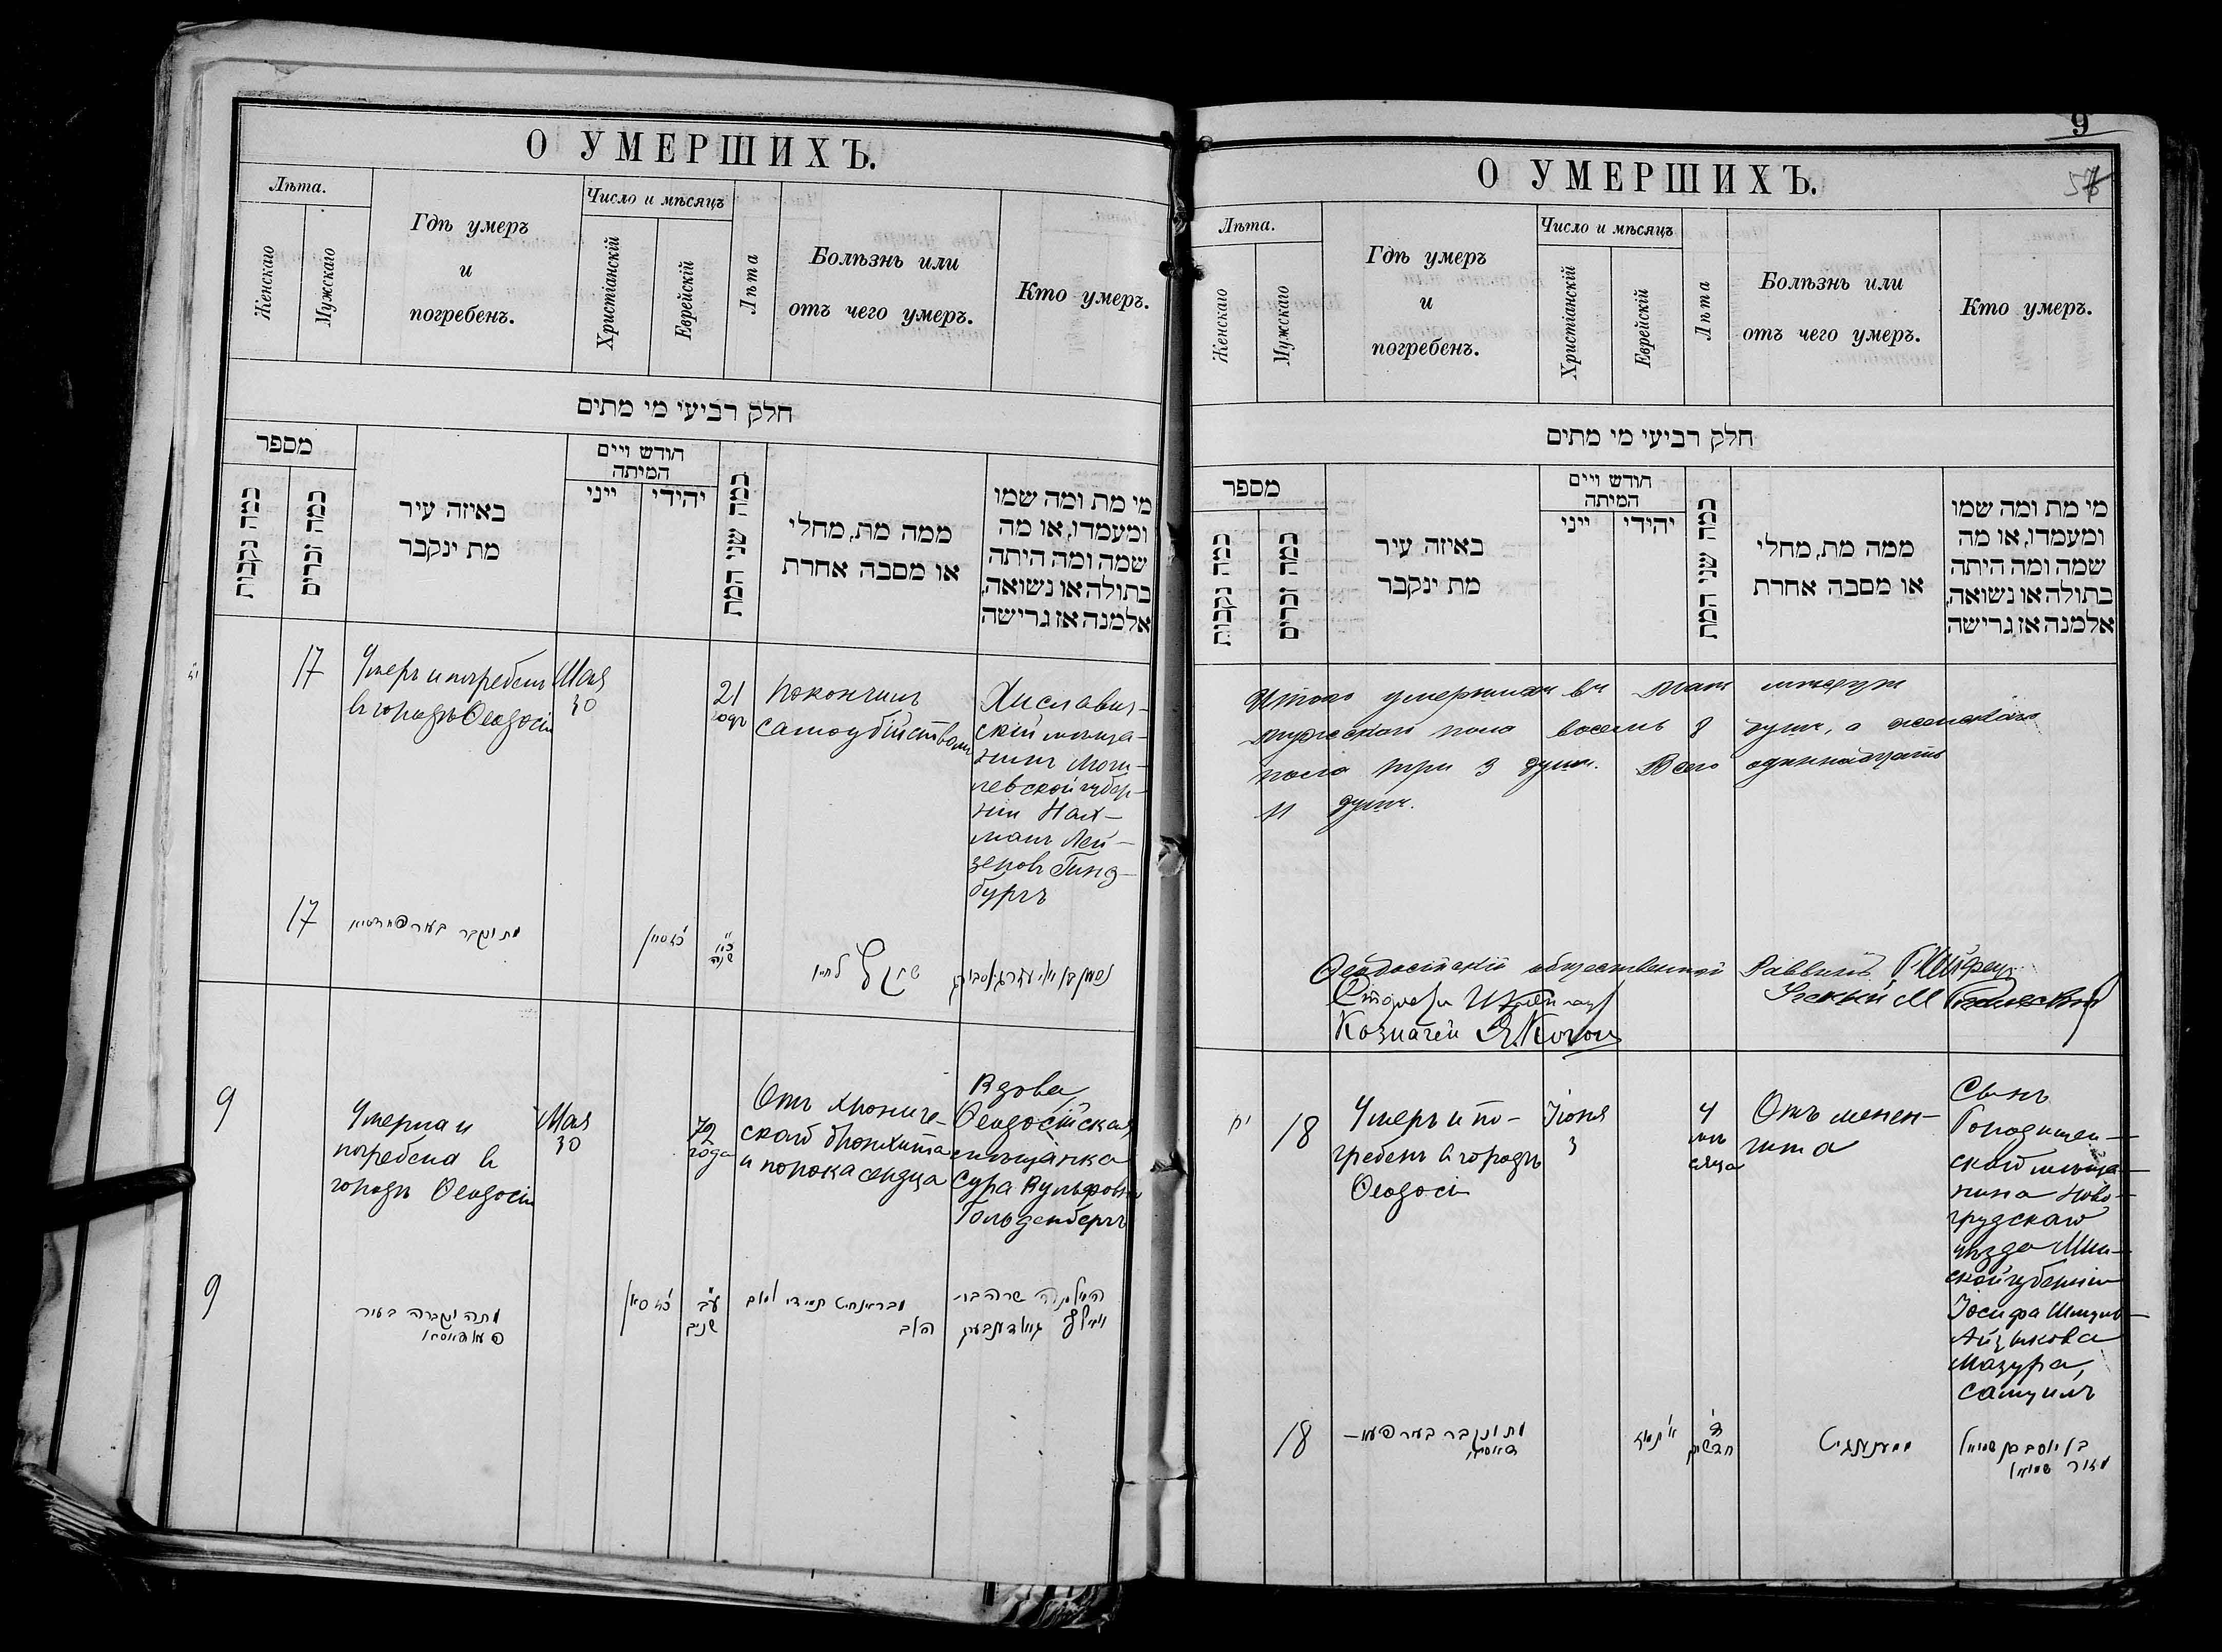 О УМЕРШИХЪ.
Лѣта.
Женскаго
Мужскаго
Гдѣ умеръ
и
погребенъ.
Число и мѣсяцъ
Христіанскій
Еврейскій
Лѣта
Болѣзнь или
отъ чего умеръ.
Кто умеръ.
חלק רביעי מי מתים
מספר
כמה נקבות
כמה זכרים
באיזה עיר
מת ינקבר
חודש ויים
המיתה
ייני
יהידי
כמה שני המת
ממה מת, מחלי
או מסבה אחרת
מי מת ומה שמו
ומעמדו, או מה
שמה ומה היתה
בתולה או נשואה,
אלמנה אז גרישה
17
Умеръ и погребенъ
въ городѣ Ѳеодосіи
Мая
30
21
годъ
Покончилъ
самоубійствомъ
Хиславич-
скій мѣща-
нинъ Моги-
левской губер-
ніи Нах-
манъ Лей-
зеровъ Гинз-
бургъ
17
מת ונקבר בעיר
שנה
9
Умерла и
погребена въ
городѣ Ѳеодосіи
Мая
30
72
года
Отъ хрониче-
скаго бронхита
и порока сердца
Вдова,
Ѳеодосійская
мѣщанка
Сура Вульфовна
Гольденбергъ
9
מתה ונקברה בעיר
ע״ב
שנים
האלמנה שרה בת
וואלף גאלדענבערג
9
О УМЕРШИХЪ.
Лѣта.
Женскаго
Мужскаго
Гдѣ умеръ
и
погребенъ.
Число и мѣсяцъ
Христіанскій
Еврейскій
Лѣта
Болѣзнь или
отъ чего умеръ.
Кто умеръ.
חלק רביעי מי מתים
מספר
כמה נקבות
כמה זכרים
באיזה עיר
מת ינקבר
חודש ויים
המיתה
ייני
יהידי
כמה שני המת
ממה מת, מחלי
או מסבה אחרת
מי מת ומה שמו
ומעמדו, או מה
שמה ומה היתה
בתולה או נשואה,
אלמנה אז גרישה
Итого умершихъ въ Маѣ мѣсяцѣ
мужескаго пола восемь 8 душъ, а женскаго
пола три 3 души. Всего одиннадцать
11 душъ.
Ѳеодосійскій общественный Раввинъ
Староста
Ученый М
Казначей Я. Коганъ
18
Умеръ и по-
гребенъ въ городѣ
Ѳеодосіи
Іюня
3
4
мѣ-
сяца
Отъ менен-
гита
Сынъ
Городищен-
скаго мѣща-
нина Ново-
грудскаго
уѣзда Мин-
ской губерніи
Іосифа Шмуль-
Айзикова
Мазура,
Самуилъ
18
מת ונקבר בעיר
א׳ תמוז
ד׳
חדשים
בן יוסף
מזור שמואל